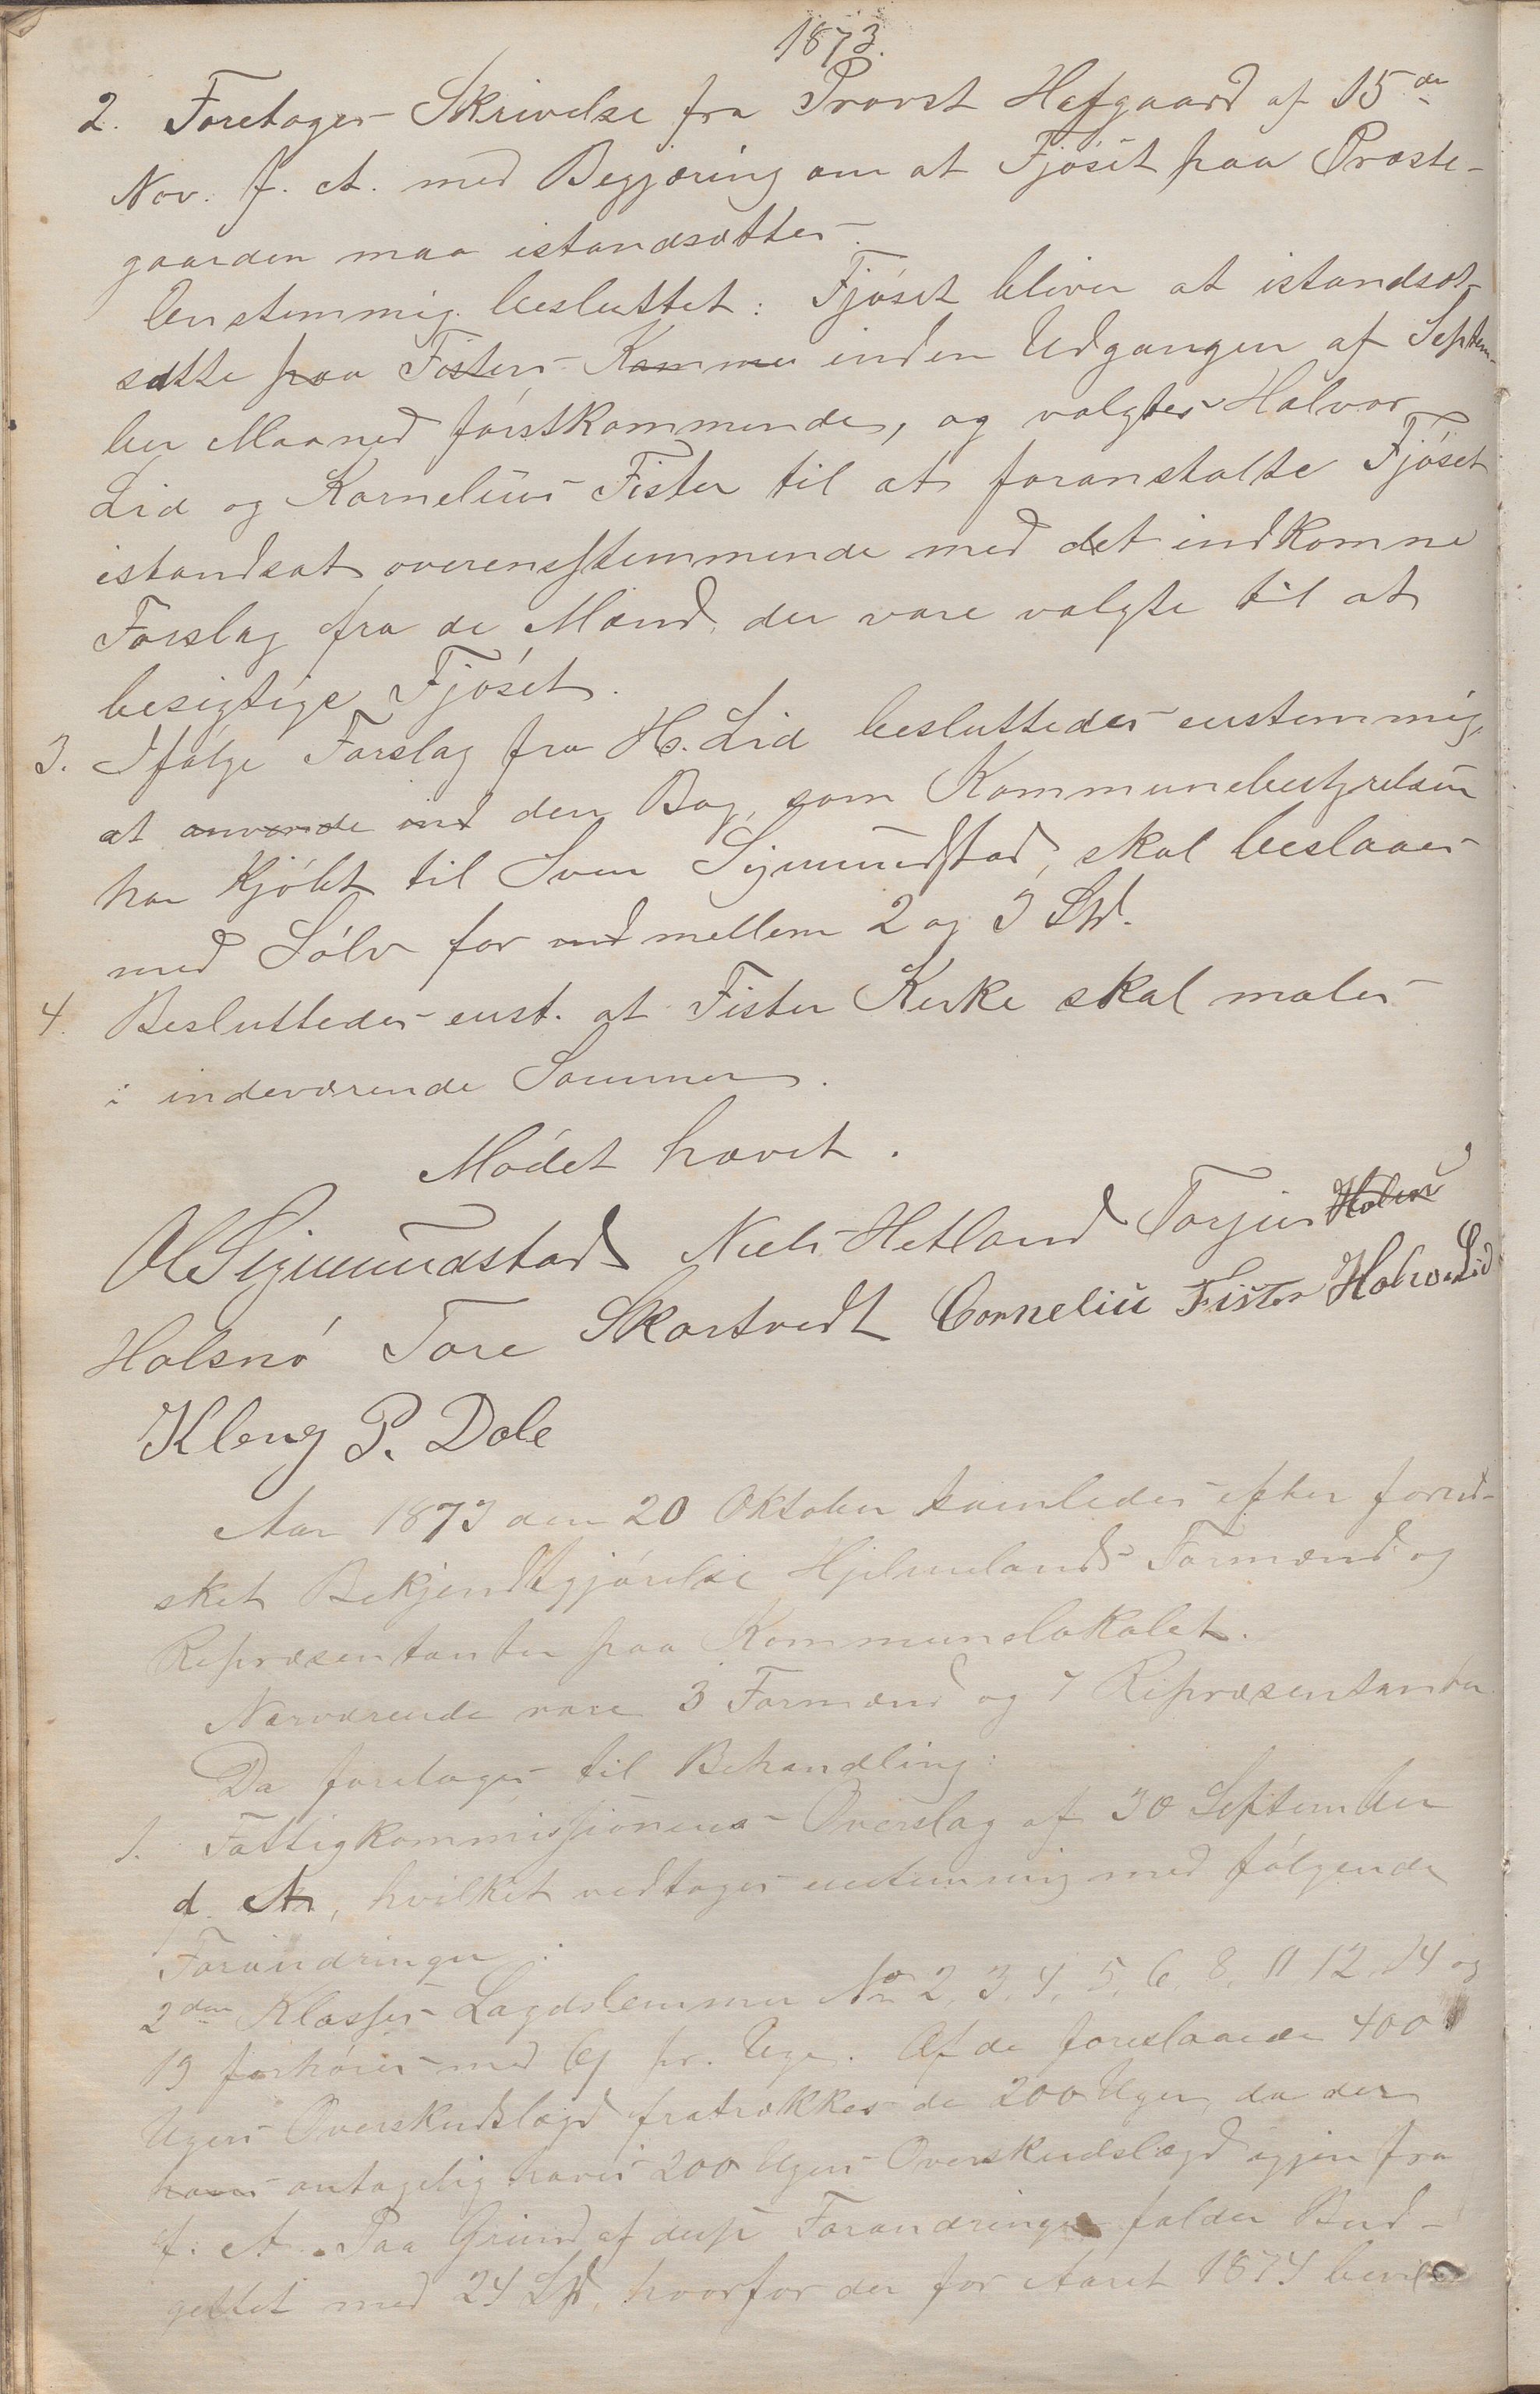 1873.
2. Foretages Skrivelse fra Provst Hafgaard af 15de
Nov. f. A. med Begjæring om at Fjöset paa Præste-
gaarden maa istandsættes.
Enstemmig besluttet: Fjöset bliver at istandsæt-
sætte paa Fisters Kammer inden Udgangen af Septem-
ber Maaned förstkommende, og valgtes Halvor
Lid og Kornelius Fister til at foranstalte Fjöset
istandsat overensstemmende med det indkomne
Forslag fra de Mænd, der vare valgte til at
besigtige Fjöset.
3. Ifölge Forslag fra H. Lid besluttedes enstemmig,
at anvende ind den Bog, som Kommunebestyrelsen
har kjöbt til Sven Sigmundstad, skal beslaaes
med Sölv for ind mellem 2 og 3 Spd.
4. Besluttedes enst. at Fister Kirke skal males
i indeværende Sommer.
Mödet hævet.
Ol Sigmundstad Niels Hetland Torjus Halsn
Halsnö Tore Skartvedt Corneliu Fister Halvor Lid
Kleng P. Dale
Aar 1873 den 20 Oktober samledes efter forud-
sket Bekjendtgjörelse Hjelmelands Formænd og
Repræsentanter paa Kommunelokalet.
Nærværende vare 3 Formænd og 7 Repræsentanter.
Da foretoges til Behandling:
1. Fattigkommissionens Overslag af 30 September
d. A., hvilket vedtoges enstemmig med fölgende
Forandringer:
2den Klasses Lægdslemmer No 2, 3, 4, 5, 6, 8, 11, 12, 14 og
19 forhöies med 6 pr. Uge. Af de foreslaaede 400
Ugers Overskudslægd fratrækkes de 200 Uger, da der
haves antagelig haves 200 Ugers Overskudslægd igjen fra
f. A. Paa Grund af disse Forandringer falder Bud-
gettet med 24 Spd, hvorfor der for Aaret 1874 bevil